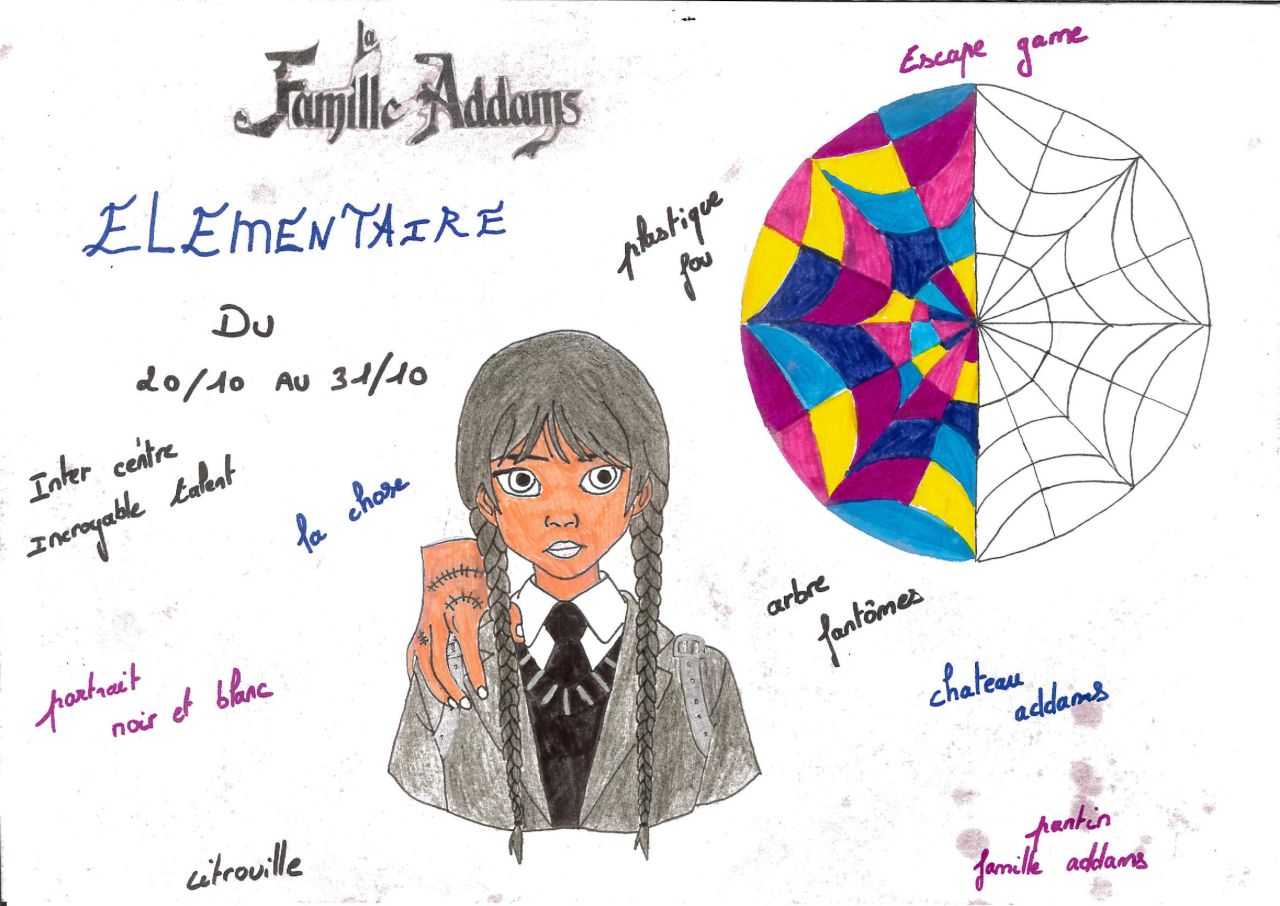 La
Famille Addams
Escape game
ELEMENTAIRE
plastique
fou
DU
20/10 AU 31/10
Inter centre
incroyable talent
la chose
arbre
fantômes
portrait
noir et blanc
chateau
addams
pantin
famille addams
citrouille